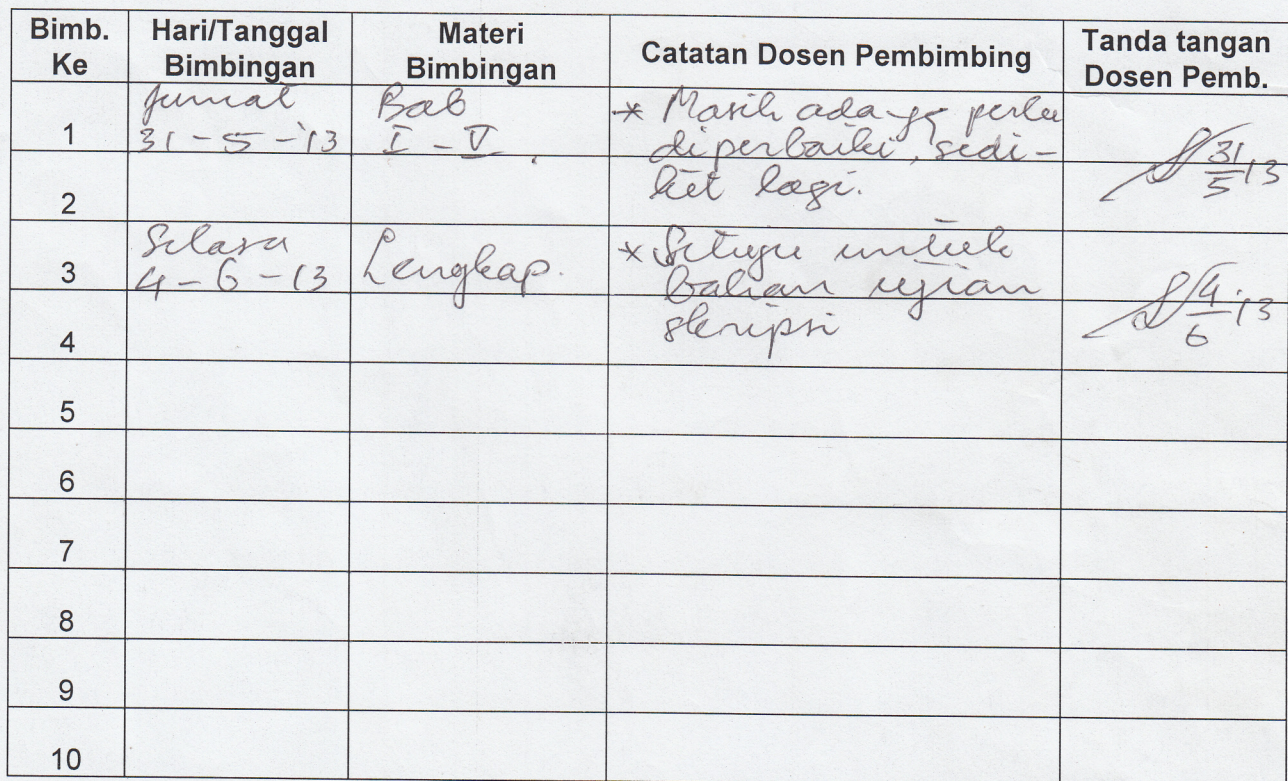 Bimb. Ke
Hari/Tanggal Bimbingan
Materi Bimbingan
Catatan Dosen Pembimbing
Tanda tangan Dosen Pemb.
1
Jumat
31 - 5 - '13
Bab
I - V.
* Masih ada yg perlu
diperbaiki, sedi-
kit lagi.
31/5 13
2
3
Selasa
4 - 6 - 13
Lengkap.
* Setuju untuk
bahan ujian
skripsi
4/6 '13
4
5
6
7
8
9
10